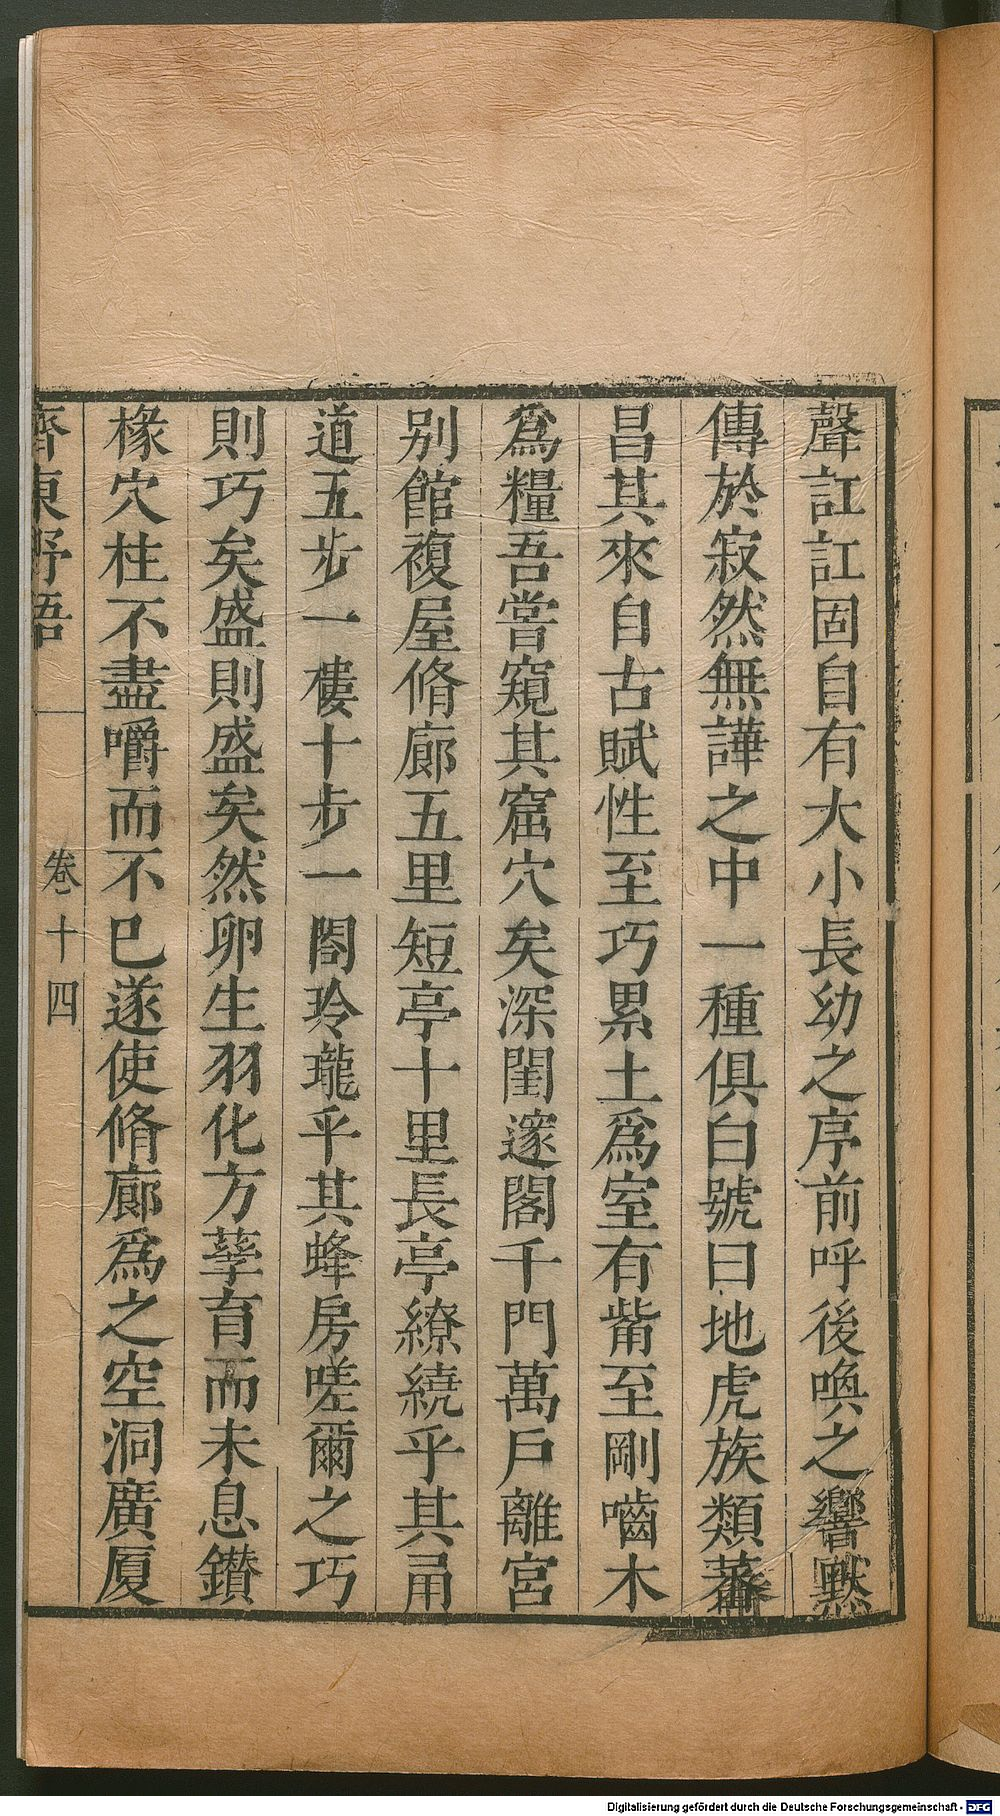 聲訌訌固自有大小長幼之序前呼後喚之響默
傳於寂然無譁之中一種俱白號曰地虎族類蕃
昌其來自古賦性至巧累土爲室有觜至剛嚙木
爲糧吾嘗窺其窟穴矣深閨邃閣千門萬戶離宮
別館複屋脩廊五里短亭十里長亭繚繞乎其甬
道五步一樓十步一閣玲瓏乎其蜂房嗟爾之巧
則巧矣盛則盛矣然卵生羽化方孳育而未息鑚
椽穴柱不盡嚼而不已遂使脩廊爲之空洞廣厦
齊東野語 卷十四
Digitalisierung gefördert durch die Deutsche Forschungsgemeinschaft - DFG